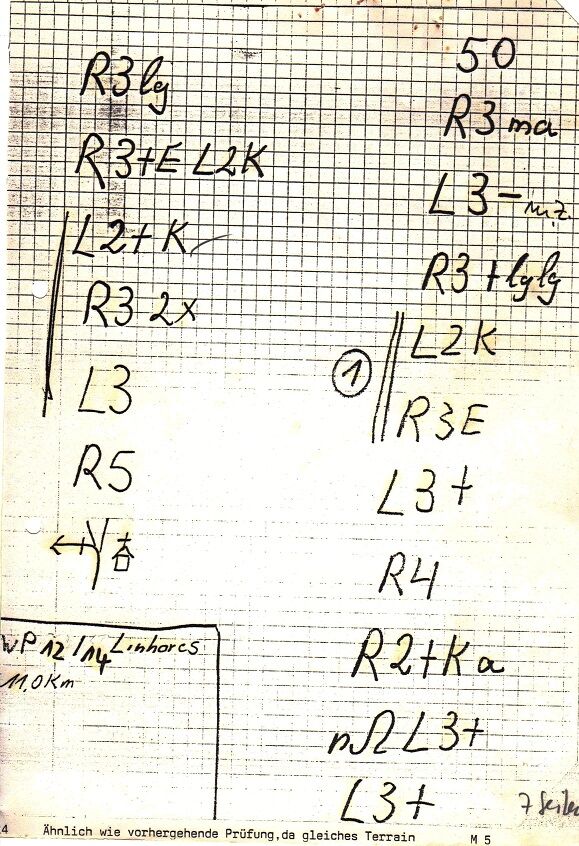 R3 lg
R3+E L2K
L2+ K
R3 2x
L3
R5
WP 12/14 Linhares
11,0 Km
50
R3 ma
L3-
R3+lglg
L2K
1
R3E
L3+
R4
R2+K a
nΩ L3+
L3+
7 Seiten
4 Ähnlich wie vorhergehende Prüfung,da gleiches Terrain M 5